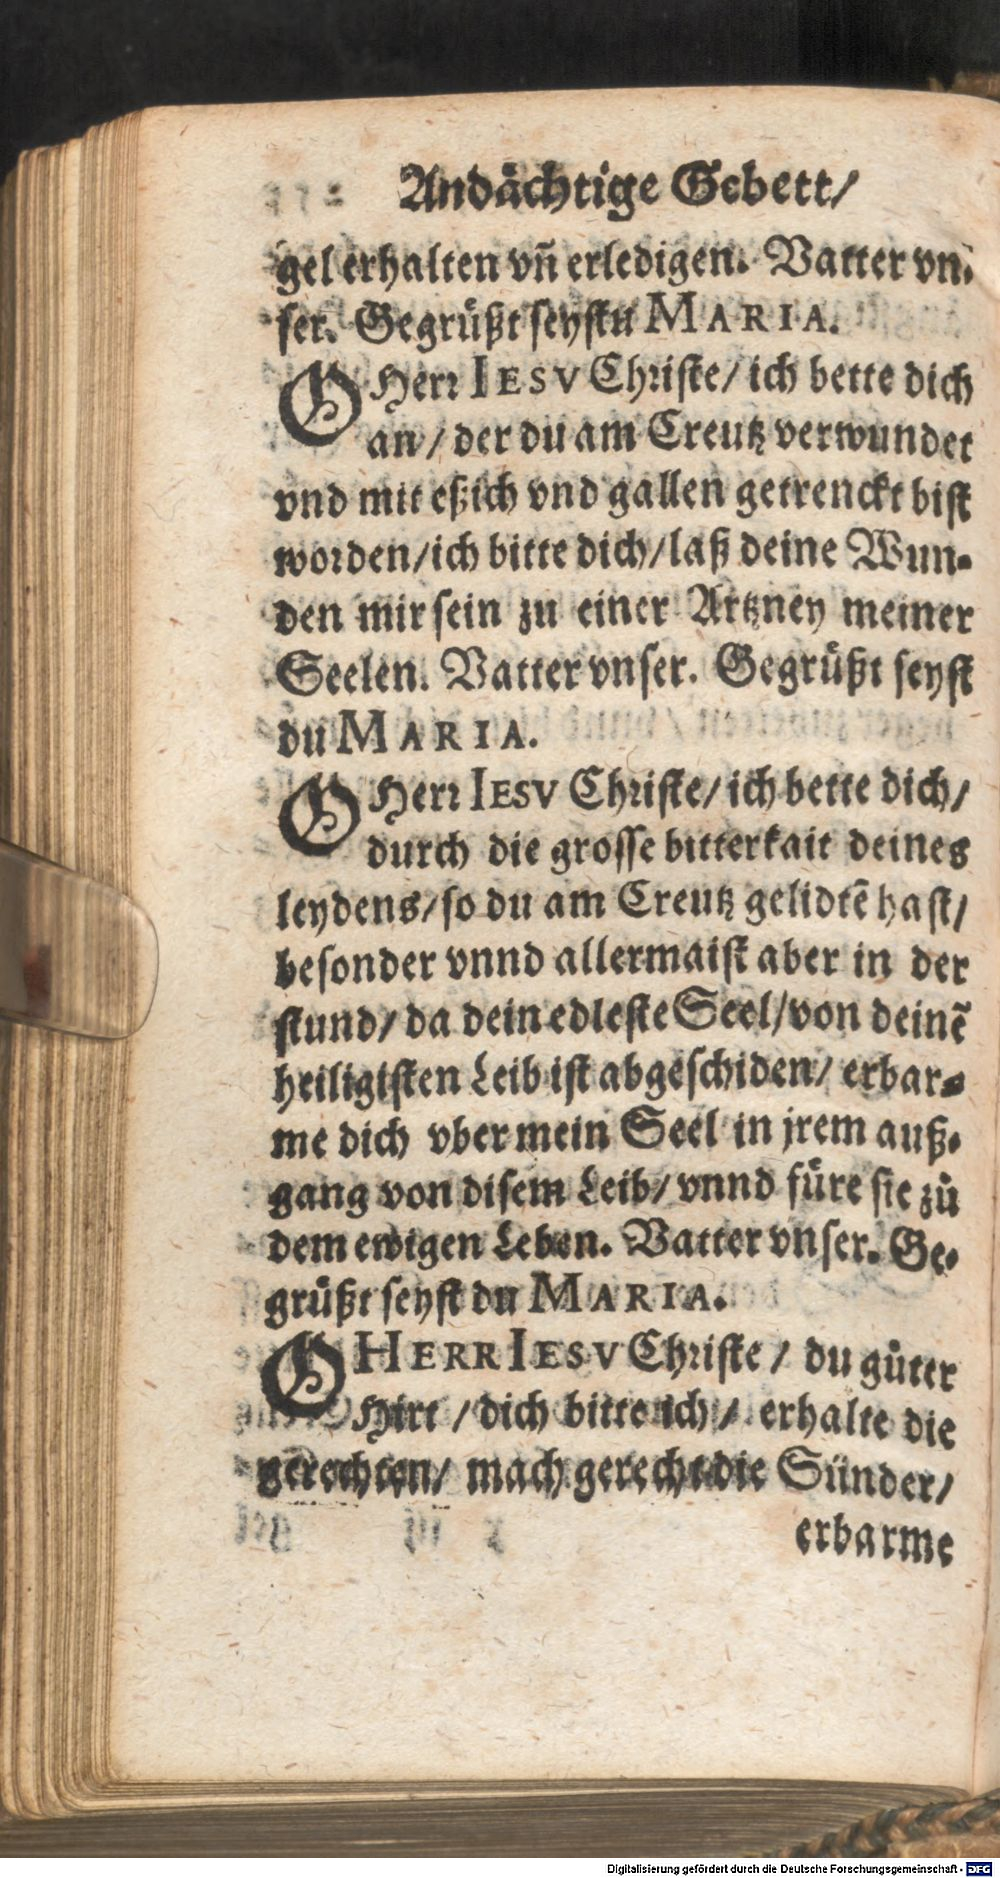 Andächtige Gebett/
gel erhalten vñ erledigen. Vatter vn-
ser. Gegrüßt seystu MARIA.
O Herr IESV Christe/ ich bette dich
an/ der du am Creutz verwundet
vnd mit eßich vnd gallen getrenckt bist
worden/ich bitte dich/laß deine Wun-
den mir sein zu einer Artzney meiner
Seelen. Vatter vnser. Gegrüßt seyst
du MARIA.
O Herr IESV Christe/ ich bette dich/
durch die grosse bitterkait deines
leydens/so du am Creutz gelidtẽ hast/
besonder vnnd allermaist aber in der
stund/ da dein edleste Seel/von deinẽ
heiligisten Leib ist abgeschiden/ erbar-
me dich vber mein Seel in jrem auß-
gang von disem Leib/ vnnd füre sie zů
dem ewigen Leben. Vatter vnser. Ge-
grüßt seyst du MARIA.
O HERR IESV Christe / du gůter
Hirt / dich bitte ich / erhalte die
gerechten/ mach gerecht die Sünder/
erbarme
Digitalisierung gefördert durch die Deutsche Forschungsgemeinschaft - DFG